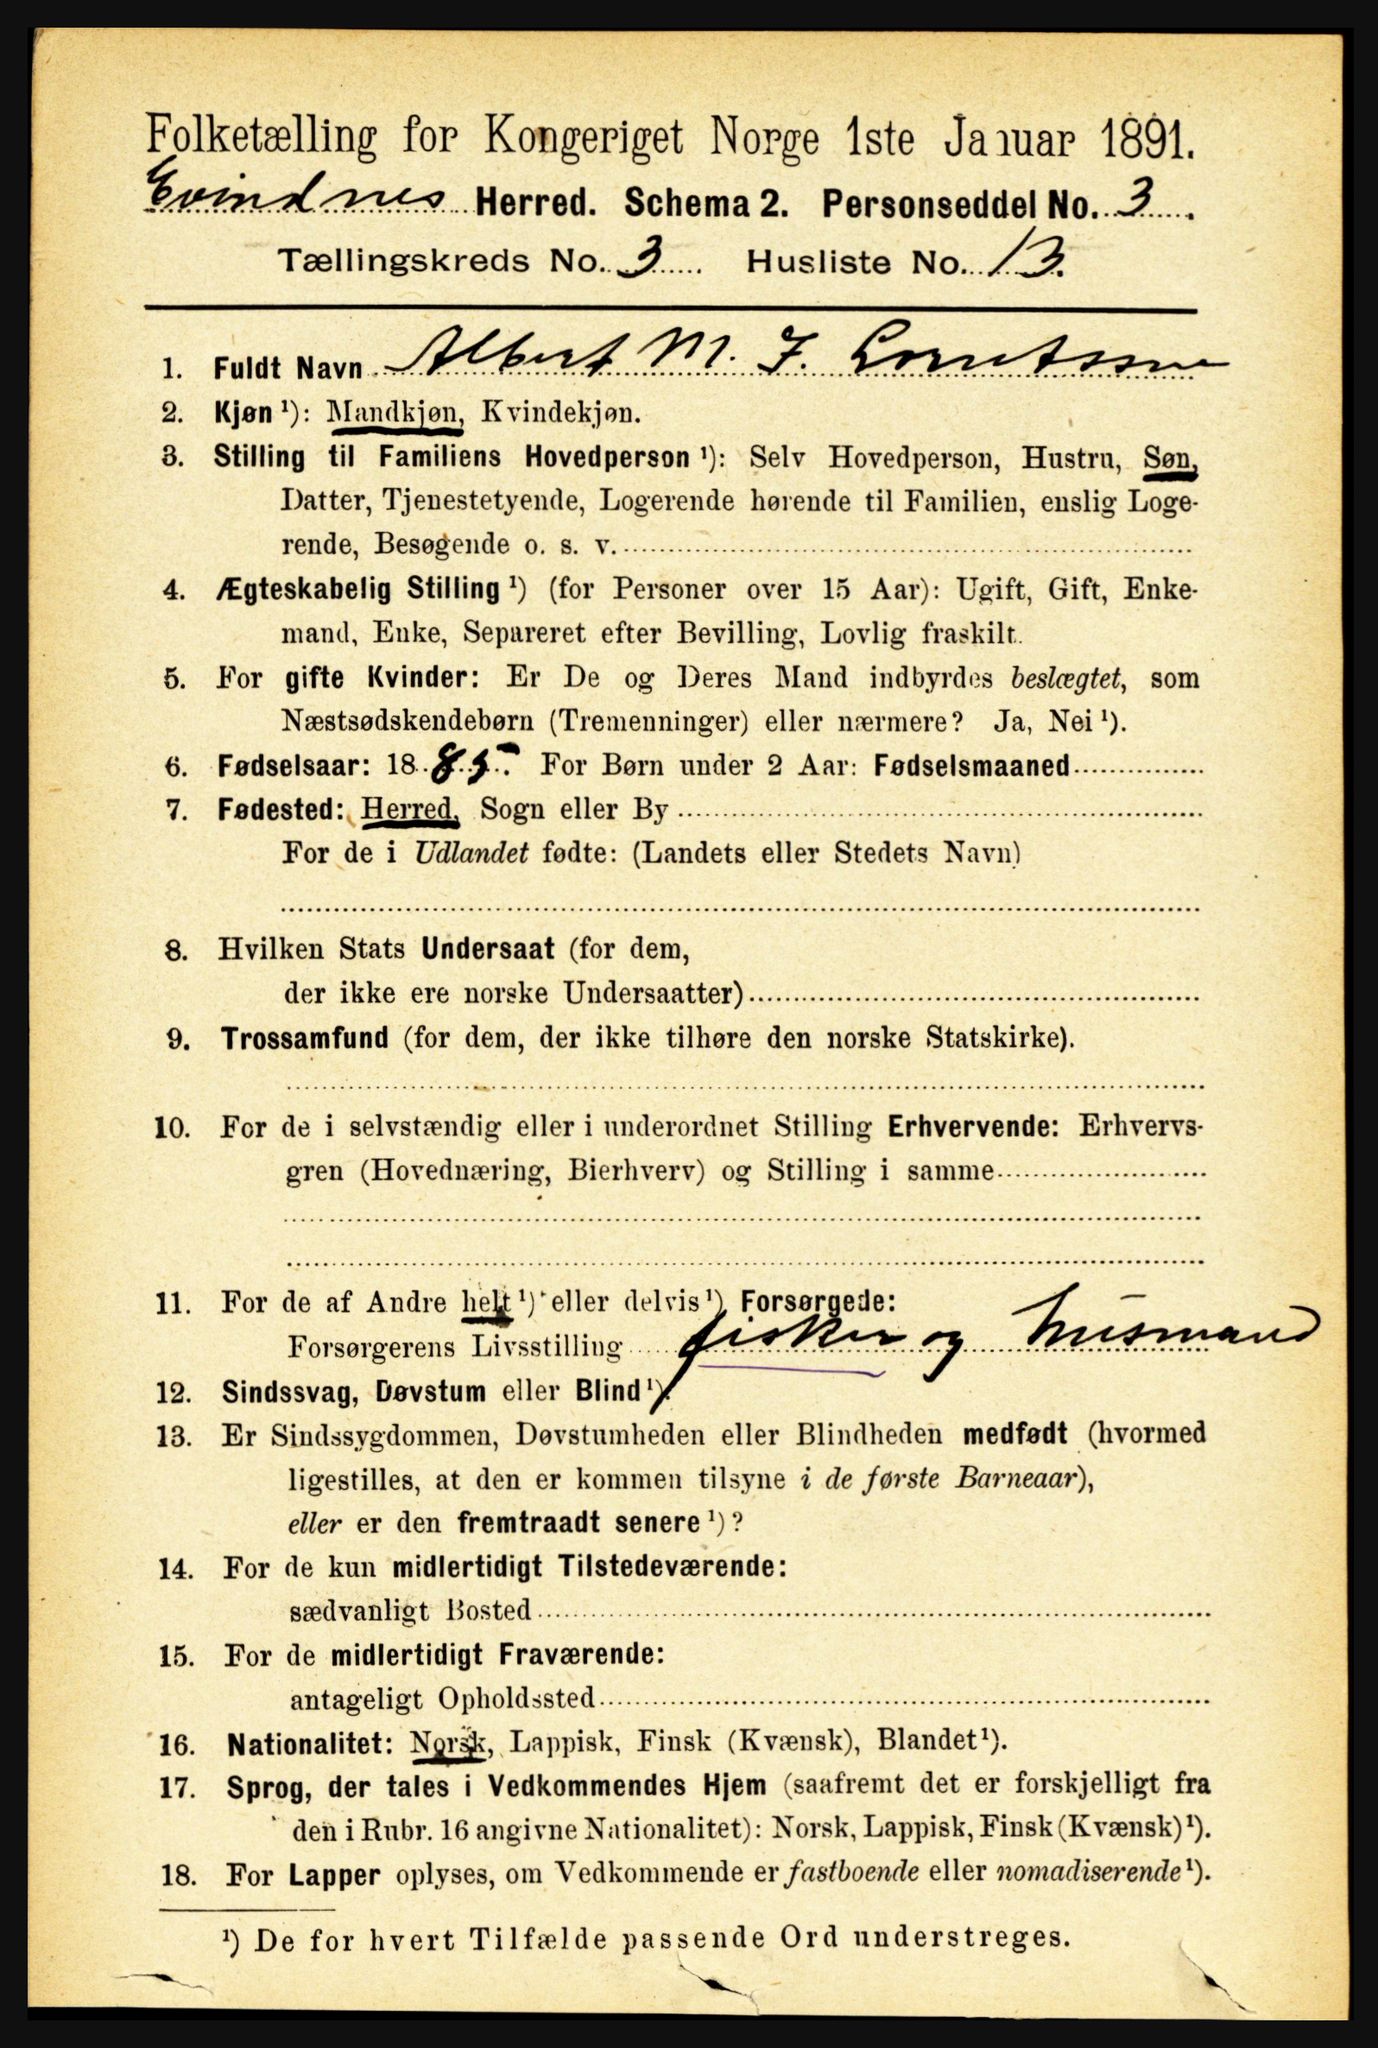 Folketælling for Kongeriget Norge 1ste Januar 1891.
Evindnes Herred. Schema 2. Personseddel No. 3.
Tællingskreds No. 3 Husliste No. 13.
1. Fuldt Navn Albert M. J. Lorntssen
2. Kjøn ¹): Mandkjøn, Kvindekjøn.
3. Stilling til Familiens Hovedperson ¹): Selv Hovedperson, Hustru, Søn,
Datter, Tjenestetyende, Logerende hørende til Familien, enslig Loge-
rende, Besøgende o. s. v.
4. Ægteskabelig Stilling ¹) (for Personer over 15 Aar): Ugift, Gift, Enke-
mand, Enke, Separeret efter Bevilling, Lovlig fraskilt.
5. For gifte Kvinder: Er De og Deres Mand indbyrdes beslægtet, som
Næstsødskendebørn (Tremenninger) eller nærmere? Ja, Nei ¹).
6. Fødselsaar: 1885. For Børn under 2 Aar: Fødselsmaaned
7. Fødested: Herred, Sogn eller By
For de i Udlandet fødte: (Landets eller Stedets Navn)
8. Hvilken Stats Undersaat (for dem,
der ikke ere norske Undersaatter)
9. Trossamfund (for dem, der ikke tilhøre den norske Statskirke).
10. For de i selvstændig eller i underordnet Stilling Erhvervende: Erhvervs-
gren (Hovednæring, Bierhverv) og Stilling i samme
11. For de af Andre helt ¹) eller delvis ¹) Forsørgede:
Forsørgerens Livsstilling fisker og husmand
12. Sindssvag, Døvstum eller Blind ¹).
13. Er Sindssygdommen, Døvstumheden eller Blindheden medfødt (hvormed
ligestilles, at den er kommen tilsyne i de første Barneaar),
eller er den fremtraadt senere ¹)?
14. For de kun midlertidigt Tilstedeværende:
sædvanligt Bosted
15. For de midlertidigt Fraværende:
antageligt Opholdssted
16. Nationalitet: Norsk, Lappisk, Finsk (Kvænsk), Blandet ¹).
17. Sprog, der tales i Vedkommendes Hjem (saafremt det er forskjelligt fra
den i Rubr. 16 angivne Nationalitet): Norsk, Lappisk, Finsk (Kvænsk) ¹).
18. For Lapper oplyses, om Vedkommende er fastboende eller nomadiserende ¹).
¹) De for hvert Tilfælde passende Ord understreges.